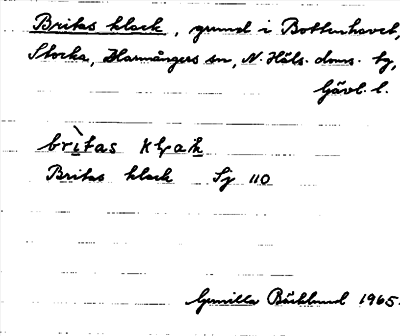 Britas klack, grund i Bottenhavet,
Stocka, Harmångers sn, N. Häls. doms. tg,
Gävl. l.
brìtas klak
Britas klack Sj 110
Gunilla Bäcklund 1965.